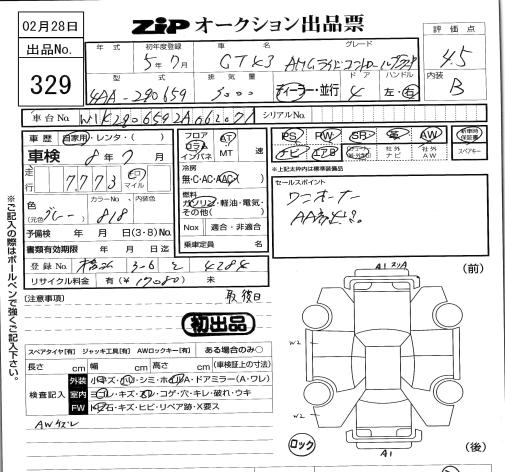 02月28日
ZiP オークション出品票
出品No.
329
年式
初年度登録
グレード
評価点
5年7月
GT43
4.5
型式
排気量
ドア
ハンドル
内装
4AA-290659
3000
ディーラー・並行
4
左・右
B
車台No.
シリアルNo.
車歴
自家用・レンタ・( )
フロア
コラム
インパネ
AT
MT
速
PS
PW
SR
革
AW
新車時保証書
ナビ
エアB
社外ナビ
社外AW
スペアキー
※上記太枠内は標準装備品
車検
8年7月
冷房
無・C・AC・AAC
走行
7773
キロ
マイル
燃料
ガソリン・軽油・電気・その他( )
セールスポイント
ワンオーナー
色
(元色)
グレー
カラーNo.
818
内装色
Nox
適合・非適合
予備検
年 月 日(3・8)No.
乗車定員
名
書類有効期限
年 月 日迄
登録No.
4284
リサイクル料金
有(¥17080)
未
(注意事項)
取後日
初出品
A1
(前)
スペアタイヤ[有]
ジャッキ工具[有]
AWロックキー[有]
ある場合のみ○
長さ
cm
幅
cm
高さ
cm
(車検証上の寸法)
W2
検査記入
外装
小キズ・凹・シミ・ホイルA・ドアミラー(A・ワレ)
室内
ヨゴレ・キズ・スレ・コゲ・穴・キレ・破れ・ウキ
FW
飛石・キズ・ヒビ・リペア跡・X要ス
AWキズレ
W2
ロック
A1
(後)
※ご記入の際はボールペンで強くご記入下さい。